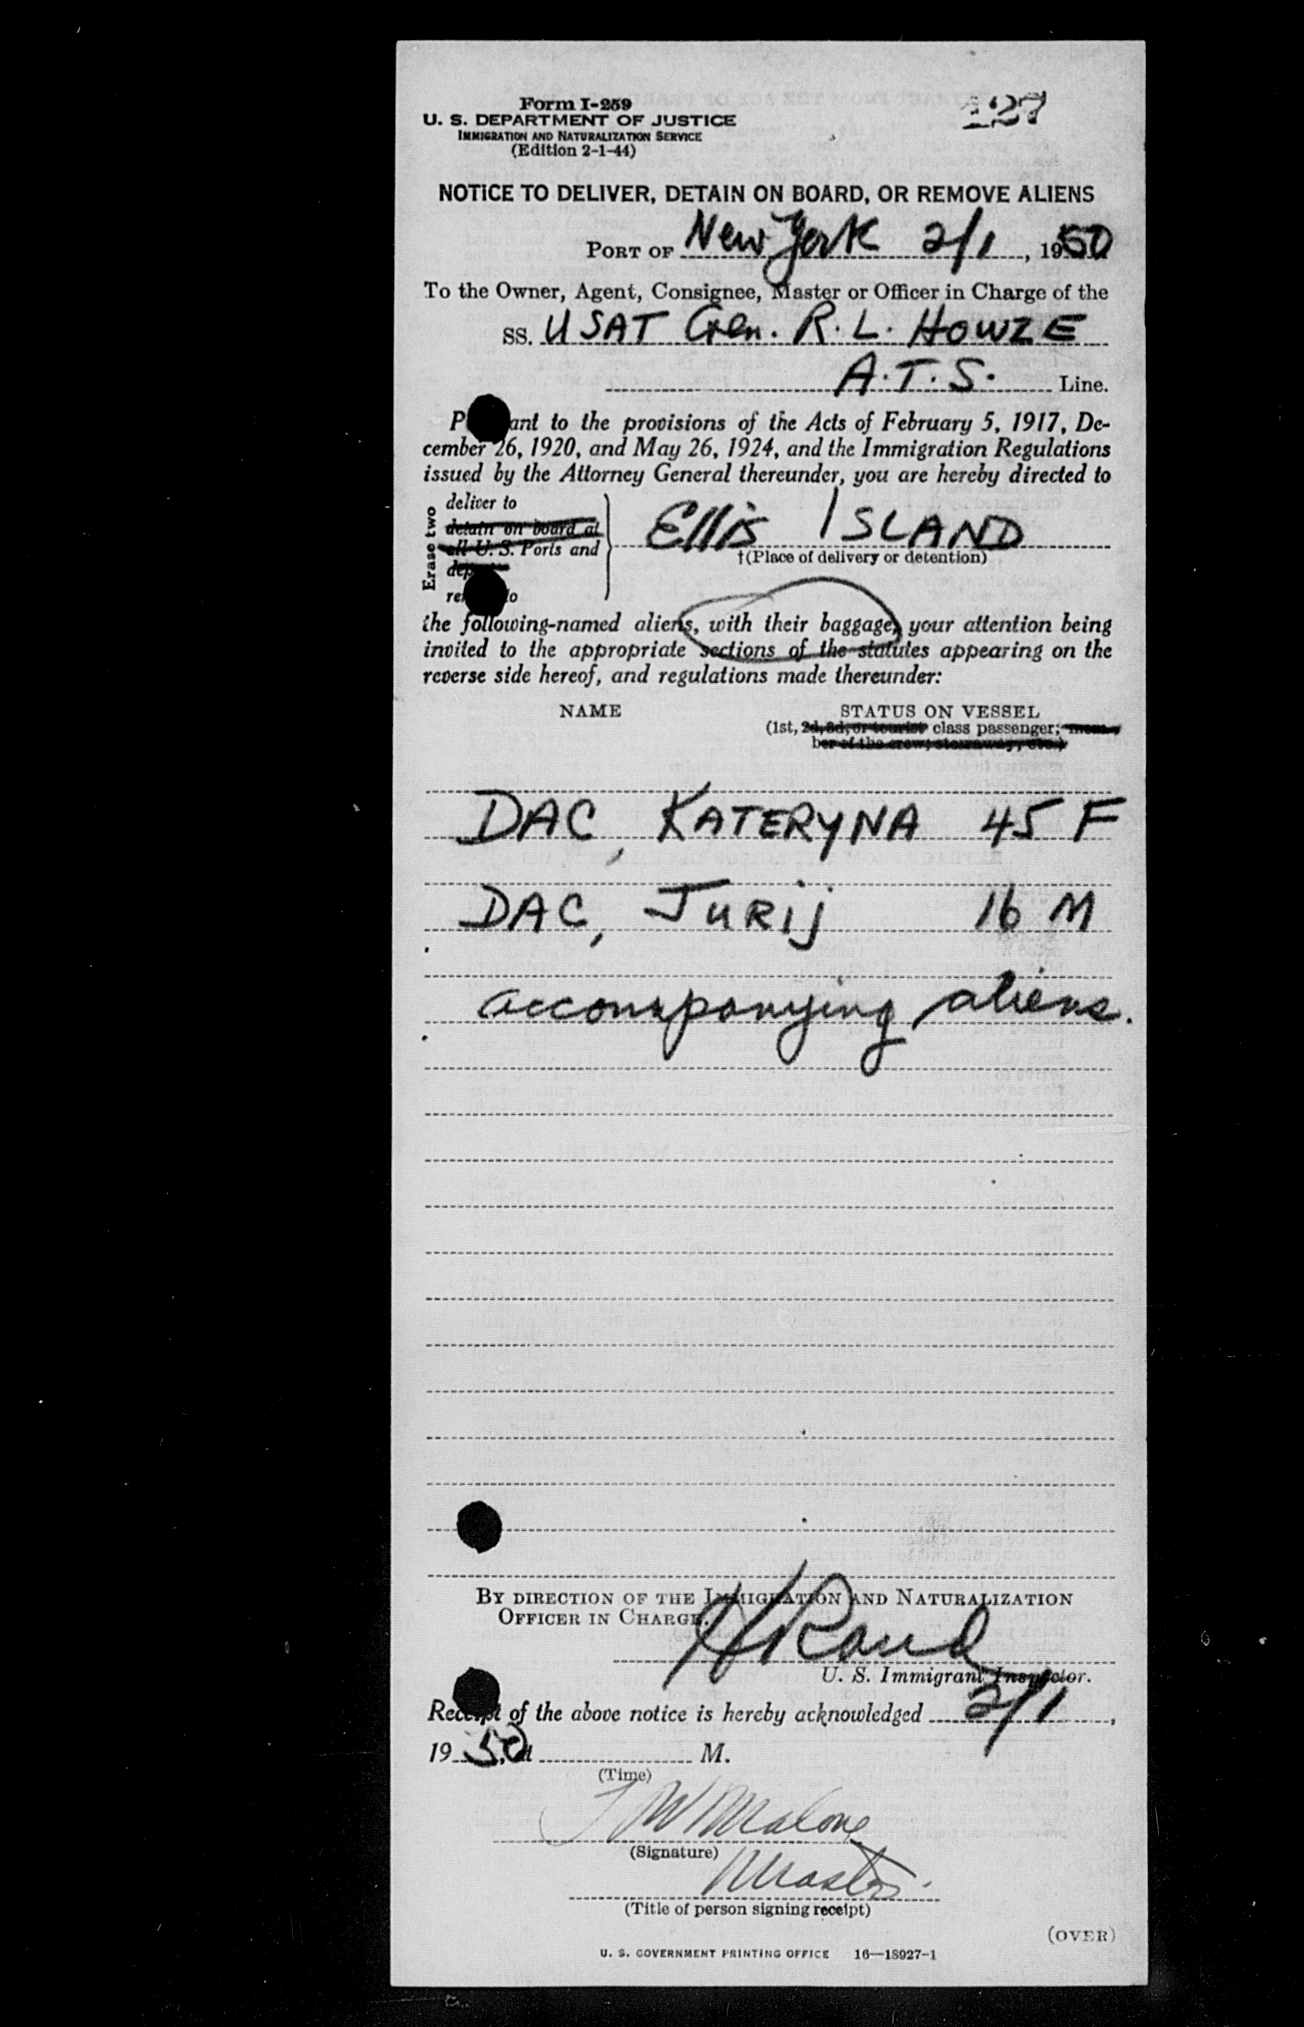 Form I-259
127
U. S. DEPARTMENT OF JUSTICE
IMMIGRATION AND NATURALIZATION SERVICE
(Edition 2-1-44)
NOTICE TO DELIVER, DETAIN ON BOARD, OR REMOVE ALIENS
PORT OF New York 2/1, 1950
To the Owner, Agent, Consignee, Master or Officer in Charge of the
SS. USAT Gen. R. L. HOWZE
A.T.S. Line.
P ant to the provisions of the Acts of February 5, 1917, De-
cember 26, 1920, and May 26, 1924, and the Immigration Regulations
issued by the Attorney General thereunder, you are hereby directed to
Erase two
deliver to
detain on board at
all U. S. Ports and
dep
re o
Ellis ISLAND
†(Place of delivery or detention)
the following-named aliens, with their baggage, your attention being
invited to the appropriate sections of the statutes appearing on the
reverse side hereof, and regulations made thereunder:
NAME STATUS ON VESSEL
(1st, 2d, 3d, or tourist class passenger; mem-
ber of the crew; stowaway, etc.)
DAC, KATERYNA 45 F
DAC, JURIJ 16 M
accompanying aliens.
BY DIRECTION OF THE IMMIGRATION AND NATURALIZATION
OFFICER IN CHARGE.
H Rand
U. S. Immigrant Inspector.
Receipt of the above notice is hereby acknowledged 2/1,
1950, at M.
(Time)
W Malone
(Signature)
Master.
(Title of person signing receipt)
(OVER)
U. S. GOVERNMENT PRINTING OFFICE 16—18927-1